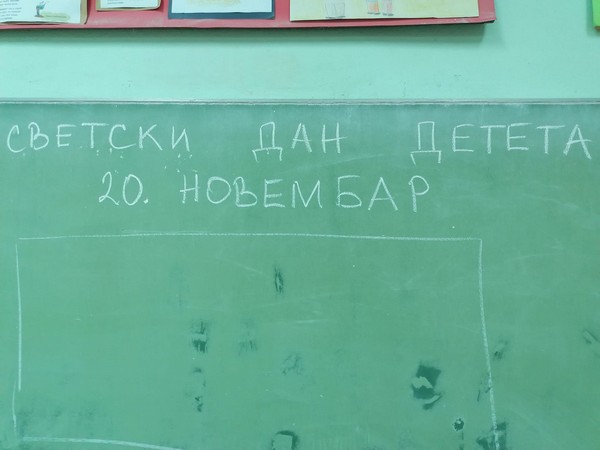 СВЕТСКИ ДАН ДЕТЕТА
20. НОВЕМБАР